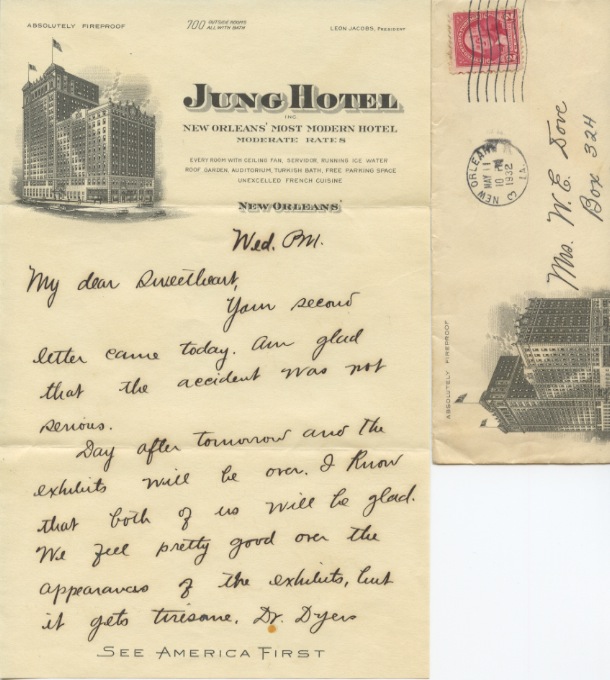 ABSOLUTELY FIREPROOF
700 OUTSIDE ROOMS ALL WITH BATH
LEON JACOBS, PRESIDENT
JUNG HOTEL
INC.
NEW ORLEANS' MOST MODERN HOTEL
MODERATE RATES
EVERY ROOM WITH CEILING FAN, SERVIDOR, RUNNING ICE WATER
ROOF GARDEN, AUDITORIUM, TURKISH BATH, FREE PARKING SPACE
UNEXCELLED FRENCH CUISINE
NEW ORLEANS
Wed. PM.
My dear sweetheart,
Your second
letter came today. Am glad
that the accident was not
serious.
Day after tomorrow and the
exhibits will be over. I know
that both of us will be glad.
We feel pretty good over the
appearances of the exhibits, but
it gets tiresome. Dr. Dyers
SEE AMERICA FIRST
NEW ORLEANS LA.
MAY 11
10 PM
1932
3
Mrs. W. E. Dove
Box 324
ABSOLUTELY FIREPROOF